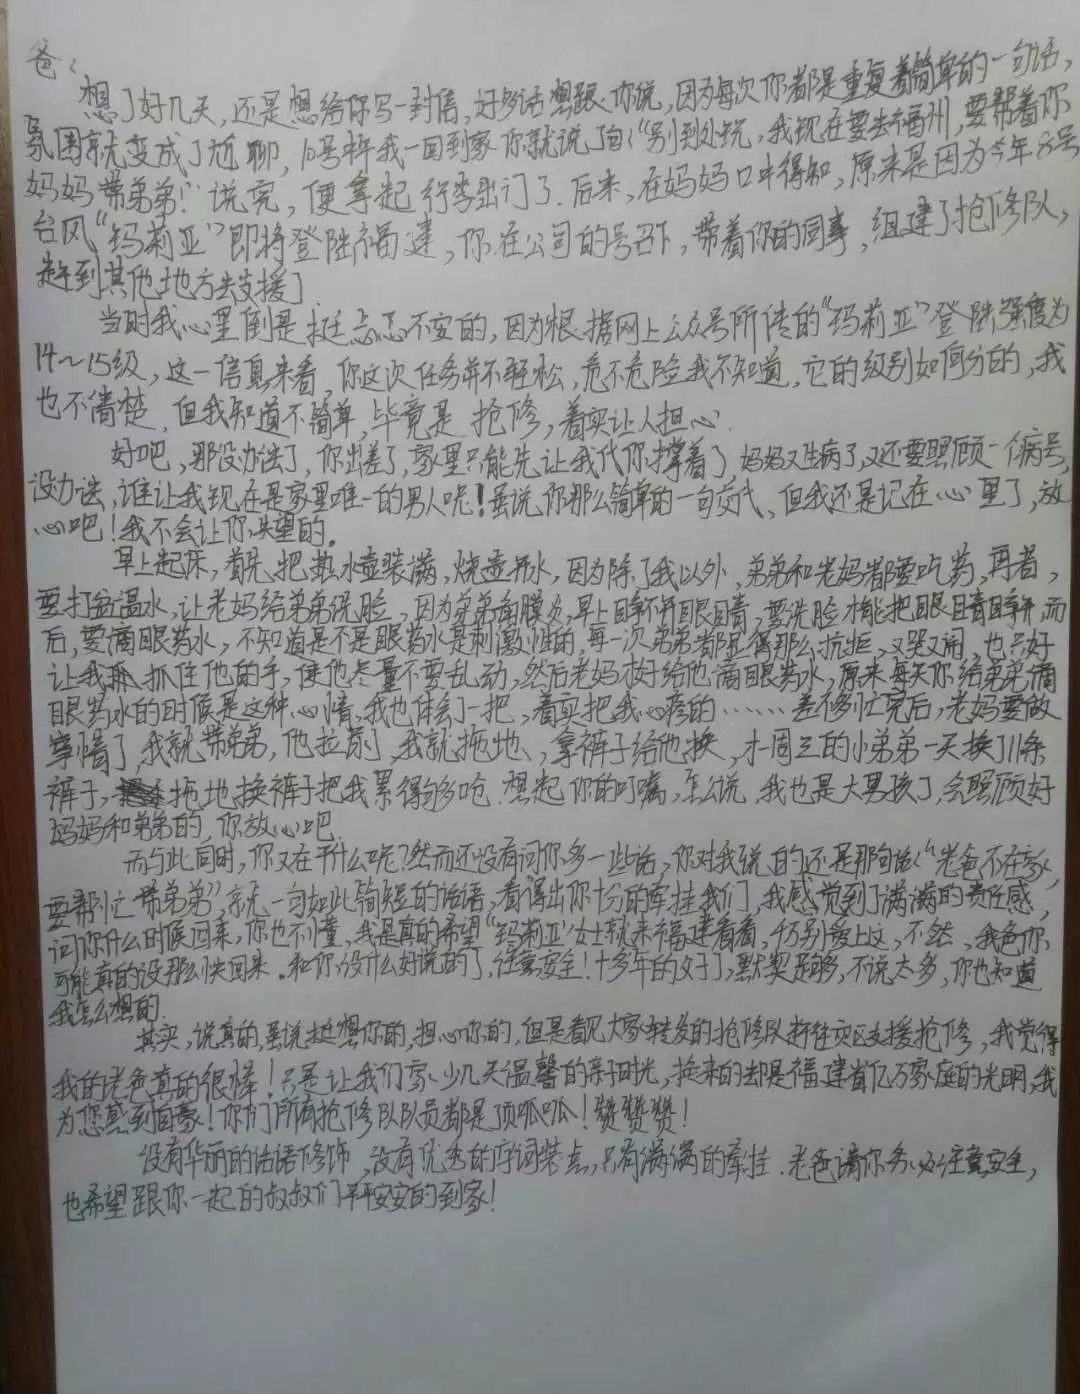 爸：
想了好几天，还是想给你写一封信，好多话想跟你说，因为每次你都是重复着简单的一句话，
氛围就变成了尬聊，10号我一回到家你就说了句“别到处玩，我现在要去福州，要帮着你
妈妈带弟弟！”说完，便拿起行李出门了.后来，在妈妈口中得知，原来是因为今年8号
台风“玛莉亚”即将登陆福建，你在公司的号召下，带着你的同事，组建了抢修队，
赶到其他地方去支援了
当时我心里倒是挺忐忑不安的，因为根据网上公众号所传的“玛莉亚”登陆强度为
14～15级，这一信息来看，你这次任务并不轻松，危不危险我不知道，它的级别如何分的，我
也不清楚，但我知道不简单，毕竟是抢修，着实让人担心.
好吧，那没办法了，你出差了，家里只能先让我代你撑着了妈妈又生病了，又还要照顾一个病号，
没办法，谁让我现在是家里唯一的男人呢！虽说你那么简单的一句交代，但我还是记在心里了，放
心吧！我不会让你失望的。
早上起床，首先把热水壶装满，烧壶开水，因为除了我以外，弟弟和老妈都要吃药，再者，
要打盆温水，让老妈给弟弟洗脸，因为弟弟角膜炎，早上睁不开眼睛，要洗脸才能把眼睛睁开，而
后，要滴眼药水，不知道是不是眼药水是刺激性的，每一次弟弟都显得那么抗拒，又哭又闹，也只好
让我抓住他的手，使他尽量不要乱动，然后老妈才好给他滴眼药水，原来每天你给弟弟滴
眼药水的时候是这种心情，我也体会了一把，着实把我心疼的……差不多忙完后，老妈要做
家务了，我就带弟弟，他拉尿了我就拖地，拿裤子给他换，才一周三的小弟弟一天换了11条
裤子，拖地换裤子把我累得够呛.想起你的叮嘱，怎么说我也是大男孩了，会照顾好
妈妈和弟弟的，你放心吧.
而与此同时，你又在干什么呢？然而还没有问你多一些话，你对我说的还是那句话“老爸不在家，
要帮忙带弟弟”，就一句如此简短的话语，看得出你十分的牵挂我们，我感觉到了满满的责任感，
问你什么时候回来，你也不懂，我是真的希望“玛莉亚”女士就来福建看看，千万别爱上这，不然，我爸你
可能真的没那么快回来.和你没什么好说的了，注意安全！十多年的父子了，默契足够，不说太多，你也知道
我怎么想的.
其实，说真的，虽说挺想你的，担心你的，但是看见大家转发的抢修队赶往灾区支援抢修，我觉得
我的老爸真的很棒！只是让我们家少几天温馨的亲子时光，换来的却是福建省亿万家庭的光明，我
为您感到自豪！你们所有抢修队队员都是顶呱呱！赞赞赞！
没有华丽的话语修饰，没有优秀的序词装点，只有满满的牵挂.老爸请你务必注意安全，
也希望跟你一起的叔叔们平平安安的到家！